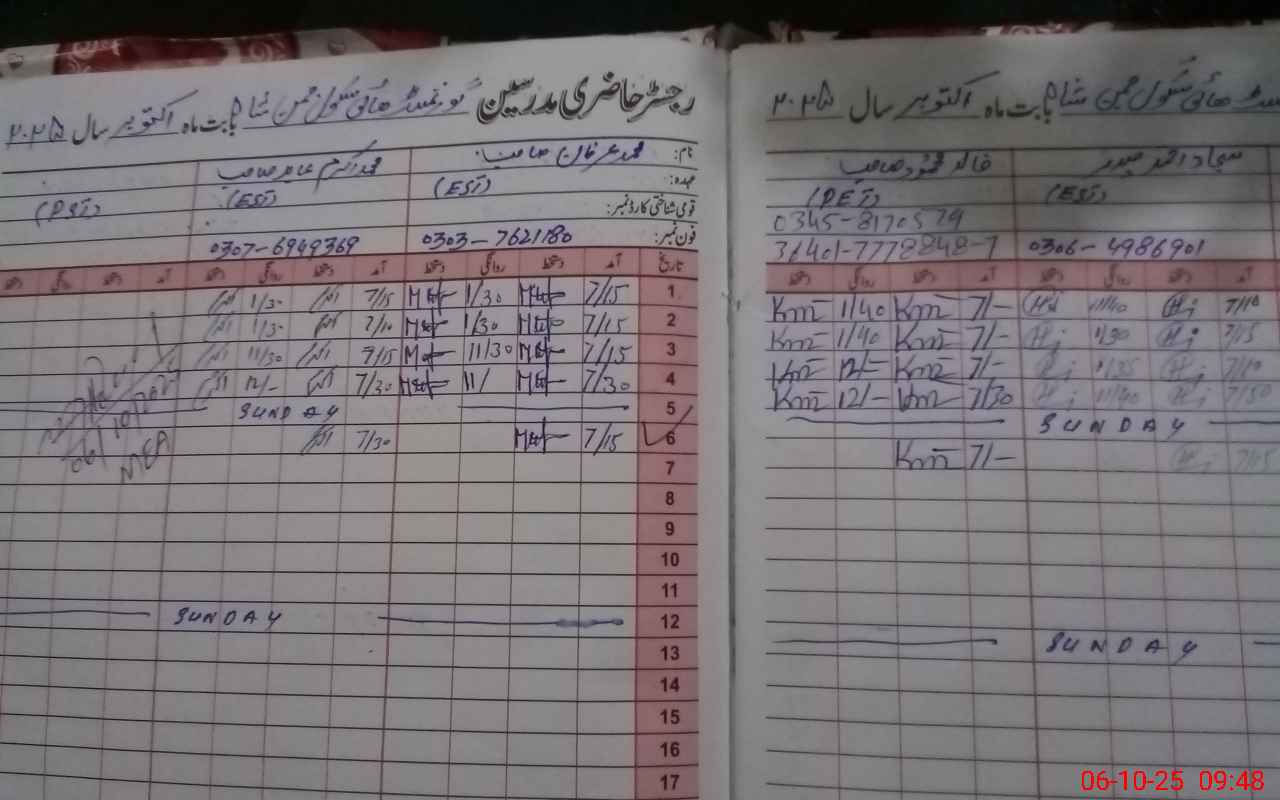 رجسٹر حاضری مدرسین گورنمنٹ ھائی سکول حسن شاہ بابت ماہ اکتوبر سال ۲۰۲۵
نام: محمد عرفان صاحب محمد اکرم عابد صاحب
عہدہ: (EST) (EST) (PST)
قومی شناختی کارڈ نمبر:
فون نمبر: 0303-7621180 0307-6949369
تاریخ آمد دستخط روانگی دستخط آمد دستخط روانگی دستخط آمد دستخط روانگی دستخط
1 7/15 1/30 7/15 1/30
2 7/15 1/30 7/10 1/30
3 7/15 11/30 7/15 11/30
4 7/30 11/ 7/30 12/-
5 SUNDAY
6 7/15 7/30
06/10/2025
MEA
7
8
9
10
11
12 SUNDAY
13
14
15
16
17
ھائی سکول حسن شاہ بابت ماہ اکتوبر سال ۲۰۲۵
سجاد احمد حیدر خالد محمود صاحب
(EST) (PET)
0345-8170579
0306-4986901 36401-7778848-7
آمد دستخط روانگی دستخط آمد دستخط روانگی دستخط
7/10 Hj 11/40 Hj 7/- Km 11/40 Km
7/15 Hj 1/30 Hj 7/- Km 1/40 Km
7/10 Hj 11/35 Hj 7/- Km 12/- Km
7/30 Hj 11/40 Hj 7/30 Km 12/- Km
SUNDAY
7/15 Hj 7/- Km
SUNDAY
06-10-25 09:48